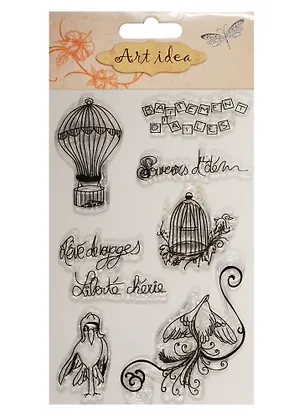 Art idea
BATTEMENT
D'AILES
Souvenirs d'dém
Rêve de voyages
Liberté chérie